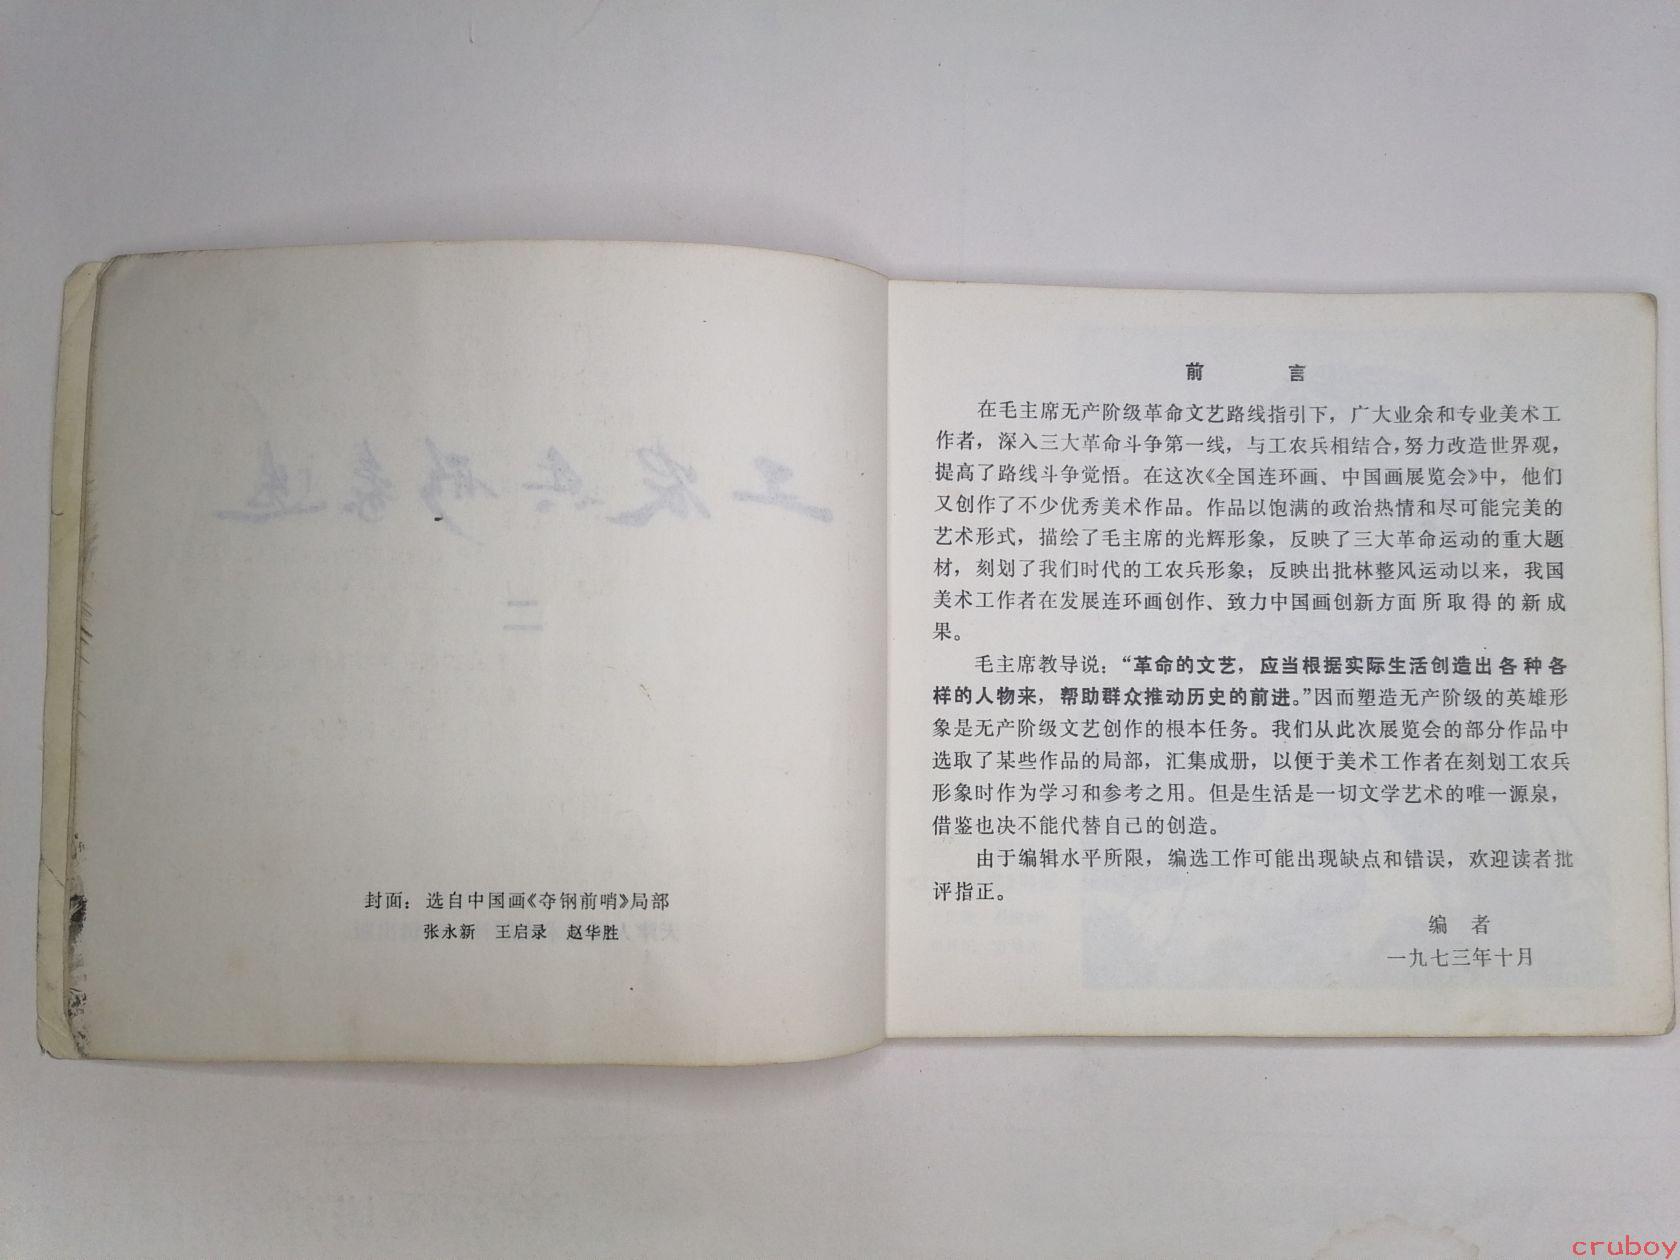 工农兵形象选
二
封面：选自中国画《夺钢前哨》局部
张永新　王启录　赵华胜
前　言
在毛主席无产阶级革命文艺路线指引下，广大业余和专业美术工
作者，深入三大革命斗争第一线，与工农兵相结合，努力改造世界观，
提高了路线斗争觉悟。在这次《全国连环画、中国画展览会》中，他们
又创作了不少优秀美术作品。作品以饱满的政治热情和尽可能完美的
艺术形式，描绘了毛主席的光辉形象，反映了三大革命运动的重大题
材，刻划了我们时代的工农兵形象；反映出批林整风运动以来，我国
美术工作者在发展连环画创作、致力中国画创新方面所取得的新成
果。
毛主席教导说：“革命的文艺，应当根据实际生活创造出各种各
样的人物来，帮助群众推动历史的前进。”因而塑造无产阶级的英雄形
象是无产阶级文艺创作的根本任务。我们从此次展览会的部分作品中
选取了某些作品的局部，汇集成册，以便于美术工作者在刻划工农兵
形象时作为学习和参考之用。但是生活是一切文学艺术的唯一源泉，
借鉴也决不能代替自己的创造。
由于编辑水平所限，编选工作可能出现缺点和错误，欢迎读者批
评指正。
编　者
一九七三年十月
cruboy